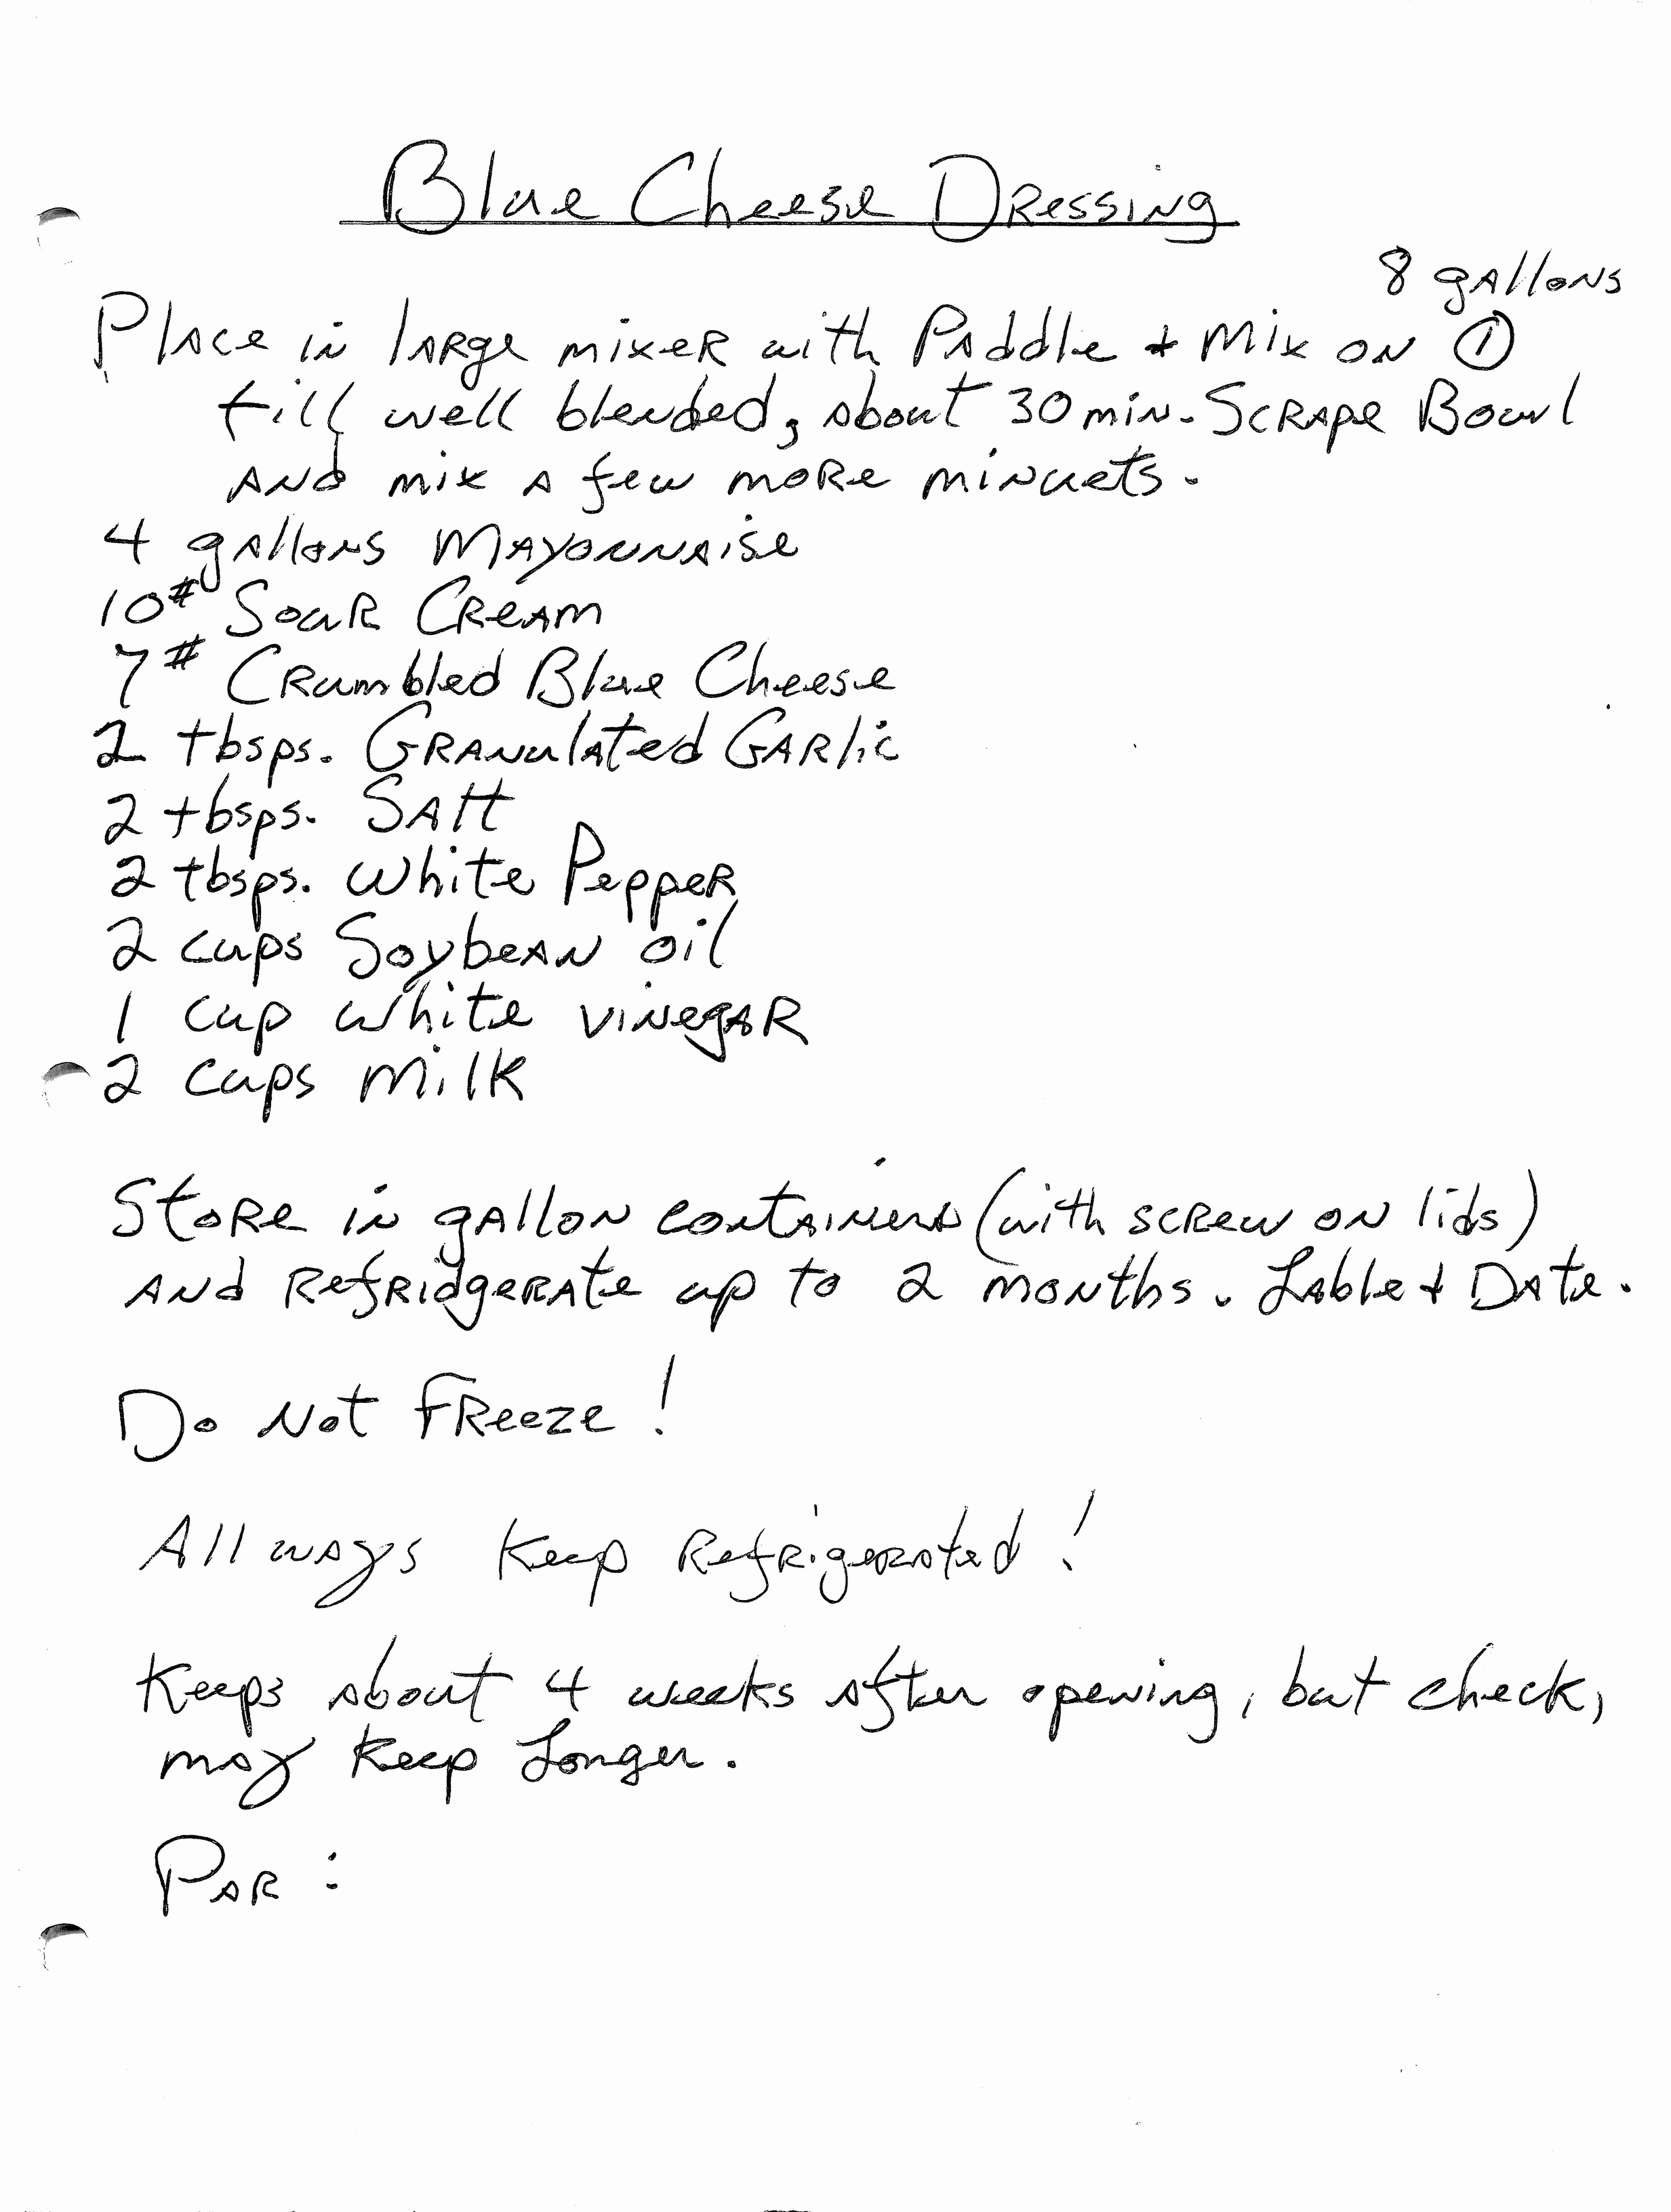 Blue Cheese Dressing
8 gallons
Place in large mixer with Paddle + Mix on ①
till well blended, about 30 min. Scrape Bowl
and mix a few more minuets.
4 gallons Mayonnaise
10# Sour Cream
7# Crumbled Blue Cheese
2 tbsps. Granulated Garlic
2 tbsps. Salt
2 tbsps. White Pepper
2 cups Soybean oil
1 cup white vinegar
2 cups Milk
Store in gallon containers (with screw on lids)
and Refridgerate up to 2 months. Lable + Date.
Do Not Freeze!
All ways Keep Refrigerated!
Keeps about 4 weeks after opening, but check,
may Keep Longer.
Par: